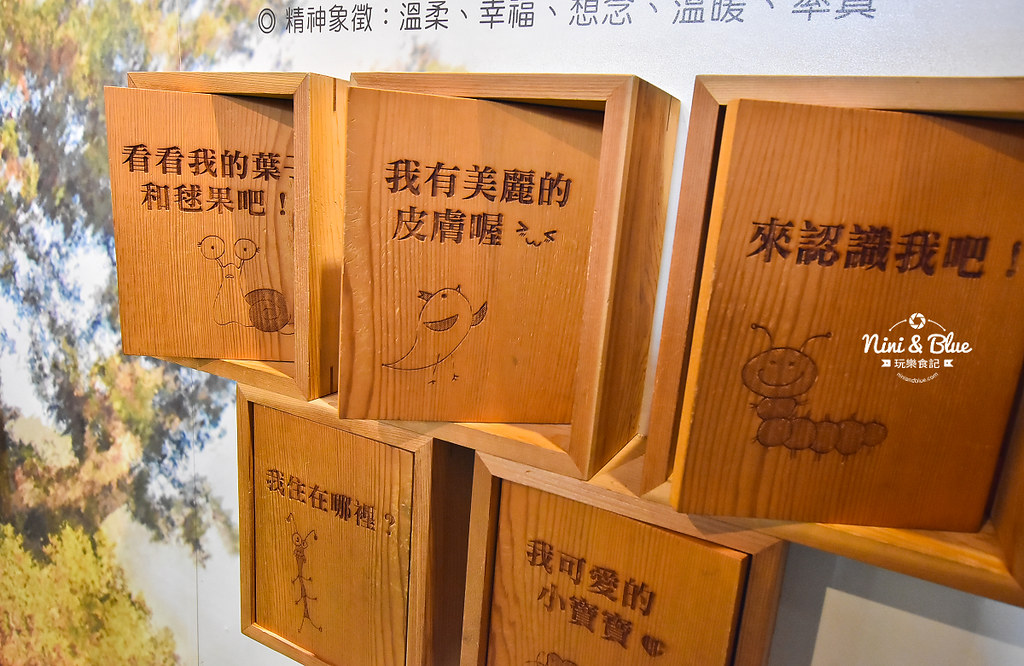 ◎ 精神象徵：溫柔、幸福、想念、溫暖、率真
看看我的葉子
和毬果吧！
我有美麗的
皮膚喔
來認識我吧！
Nini & Blue
玩樂食記
niniandblue.com
我住在哪裡？
我可愛的
小寶寶